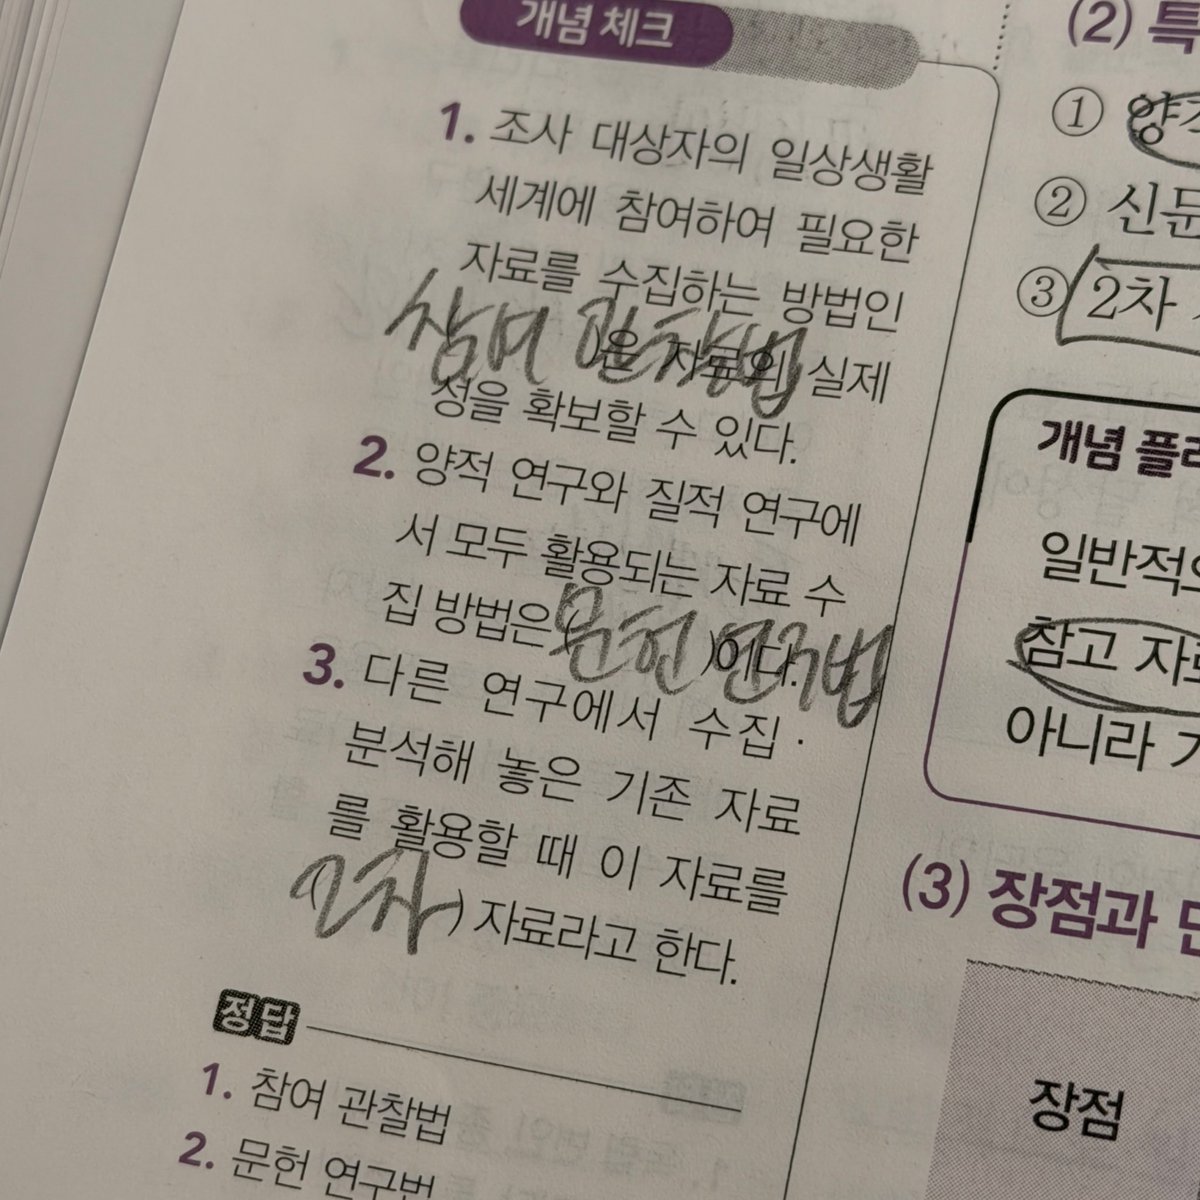 개념 체크
1. 조사 대상자의 일상생활
세계에 참여하여 필요한
자료를 수집하는 방법인
참여 관찰법
)은 자료의 실제
성을 확보할 수 있다.
2. 양적 연구와 질적 연구에
서 모두 활용되는 자료 수
집 방법은 (문헌 연구법)이다.
3. 다른 연구에서 수집·
분석해 놓은 기존 자료
를 활용할 때 이 자료를
2차) 자료라고 한다.
정답
1. 참여 관찰법
2. 문헌 연구법
(2) 특
①
② 신문
③ 2차
개념 플러
일반적으
참고 자료
아니라
(3) 장점과
장점